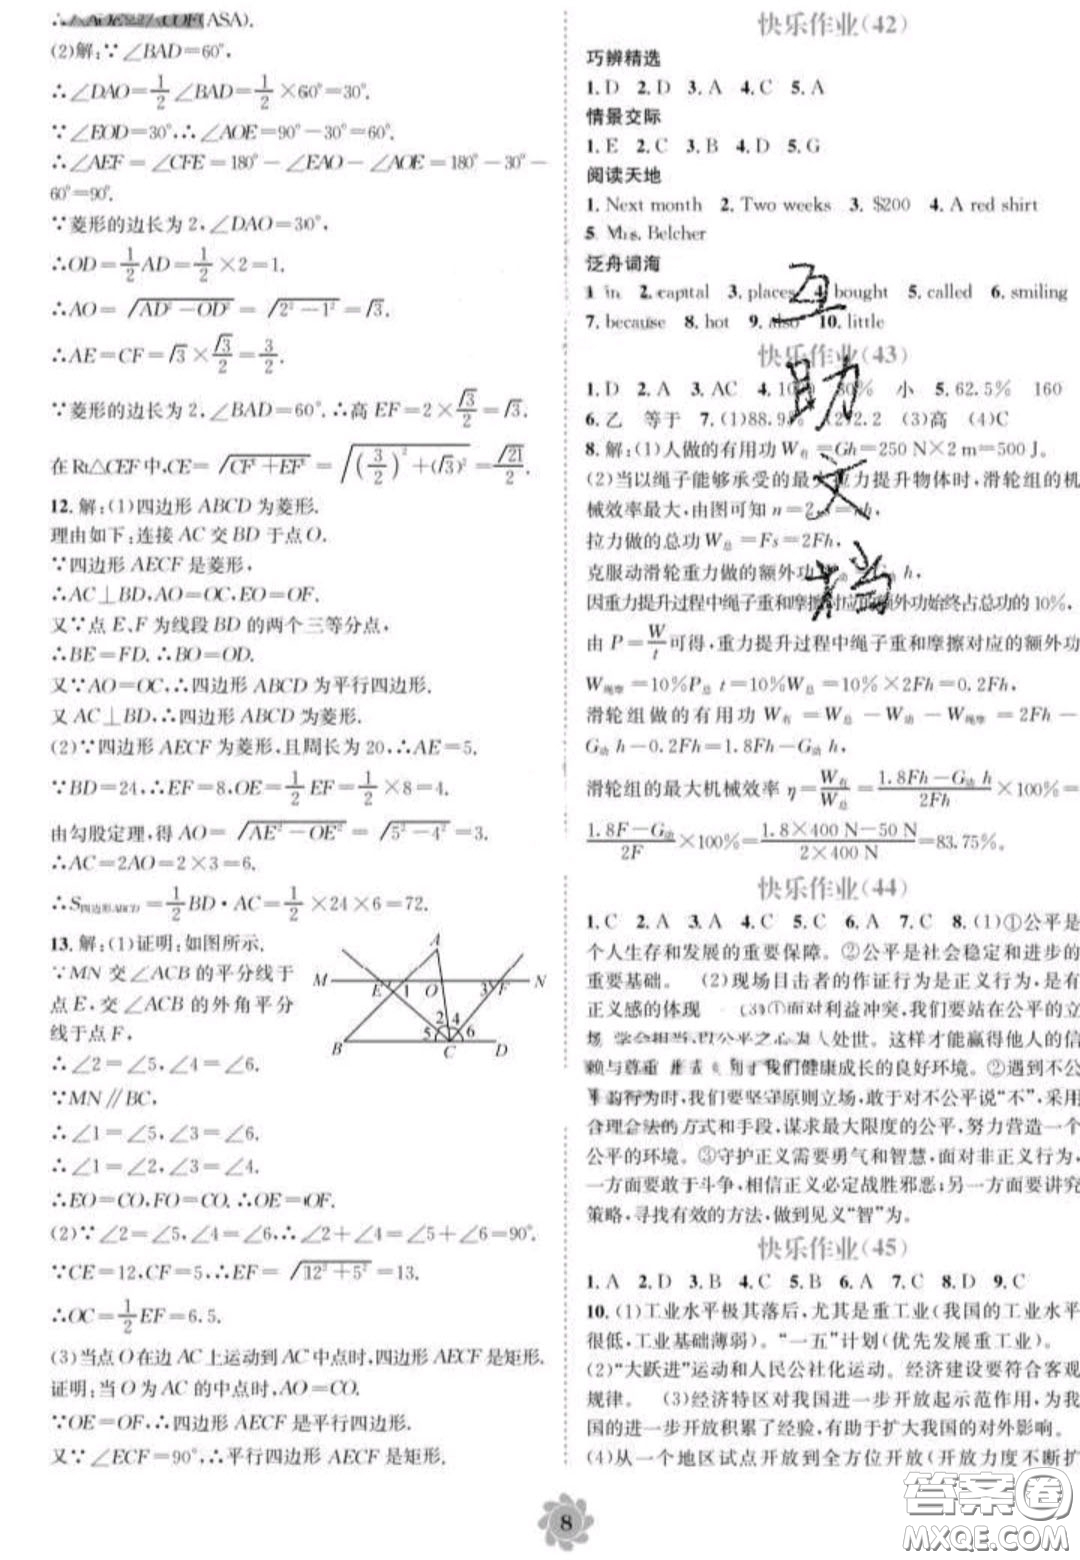 ∴△AOE≌△COF(ASA).
(2)解:∵∠BAD=60°,
∴∠DAO=1/2∠BAD=1/2×60°=30°.
∵∠EOD=30°,∴∠AOE=90°-30°=60°.
∴∠AEF=∠CFE=180°-∠EAO-∠AOE=180°-30°-
60°=90°.
∵菱形的边长为2,∠DAO=30°,
∴OD=1/2AD=1/2×2=1.
∴AO=√(AD²-OD²)=√(2²-1²)=√3.
∴AE=CF=√3×√3/2=3/2.
∵菱形的边长为2,∠BAD=60°.∴高EF=2×√3/2=√3.
在Rt△CEF中,CE=√(CF²+EF²)=√((3/2)²+(√3)²)=√21/2.
12.解:(1)四边形ABCD为菱形.
理由如下:连接AC交BD于点O.
∵四边形AECF是菱形,
∴AC⊥BD,AO=OC,EO=OF.
又∵点E、F为线段BD的两个三等分点,
∴BE=FD.∴BO=OD.
又∵AO=OC,∴四边形ABCD为平行四边形.
又AC⊥BD,∴四边形ABCD为菱形.
(2)∵四边形AECF为菱形,且周长为20,∴AE=5.
∵BD=24,∴EF=8,OE=1/2EF=1/2×8=4.
由勾股定理,得AO=√(AE²-OE²)=√(5²-4²)=3.
∴AC=2AO=2×3=6.
∴S四边形ABCD=1/2BD·AC=1/2×24×6=72.
13.解:(1)证明:如图所示.
∵MN交∠ACB的平分线于
点E,交∠ACB的外角平分
线于点F,
∴∠2=∠5,∠4=∠6.
∵MN∥BC,
∴∠1=∠5,∠3=∠6.
∴∠1=∠2,∠3=∠4.
∴EO=CO,FO=CO.∴OE=OF.
A
M E 1 O 3 F N
2 4
5 6
B C D
(2)∵∠2=∠5,∠4=∠6,∴∠2+∠4=∠5+∠6=90°.
∵CE=12,CF=5,∴EF=√(12²+5²)=13.
∴OC=1/2EF=6.5.
(3)当点O在边AC上运动到AC中点时,四边形AECF是矩形.
证明:当O为AC的中点时,AO=CO.
∵OE=OF,∴四边形AECF是平行四边形.
又∵∠ECF=90°,∴平行四边形AECF是矩形.
快乐作业(42)
巧辨精选
1. D 2. D 3. A 4. C 5. A
情景交际
1. E 2. C 3. B 4. D 5. G
阅读天地
1. Next month 2. Two weeks 3. $200 4. A red shirt
5. Mrs. Belcher
泛舟词海
1. in 2. capital 3. places 4. bought 5. called 6. smiling
7. because 8. hot 9. also 10. little
快乐作业(43)
1. D 2. A 3. AC 4. 80% 小 5. 62.5% 160
6. 乙 等于 7. (1)88.9% 2.2 (3)高 (4)C
8. 解:(1)人做的有用功W有=Gh=250 N×2 m=500 J。
(2)当以绳子能够承受的最大拉力提升物体时,滑轮组的机
械效率最大,由图可知n=2,s=2h,
拉力做的总功W总=Fs=2Fh,
克服动滑轮重力做的额外功 h,
因重力提升过程中绳子重和摩擦对应的额外功始终占总功的10%,
由P=W/t可得,重力提升过程中绳子重和摩擦对应的额外功
W绳摩=10%P总 t=10%W总=10%×2Fh=0.2Fh,
滑轮组做的有用功W有=W总-W动-W绳摩=2Fh-
G动 h-0.2Fh=1.8Fh-G动 h,
滑轮组的最大机械效率η=W有/W总=(1.8Fh-G动 h)/2Fh×100%=
(1.8F-G动)/2F×100%=(1.8×400 N-50 N)/(2×400 N)=83.75%。
快乐作业(44)
1. C 2. A 3. A 4. C 5. C 6. A 7. C 8. (1)①公平是
个人生存和发展的重要保障。②公平是社会稳定和进步的
重要基础。 (2)现场目击者的作证行为是正义行为,是有
正义感的体现 (3)①面对利益冲突,我们要站在公平的立
场 学会担当,以公平之心为人处世。这样才能赢得他人的信
赖与尊重 我们健康成长的良好环境。②遇到不公
平的行为时,我们要坚守原则立场,敢于对不公平说“不”,采用
合理合法的方式和手段,谋求最大限度的公平,努力营造一个
公平的环境。③守护正义需要勇气和智慧,面对非正义行为,
一方面要敢于斗争,相信正义必定战胜邪恶;另一方面要讲究
策略,寻找有效的方法,做到见义“智”为。
快乐作业(45)
1. A 2. D 3. B 4. C 5. B 6. A 7. C 8. D 9. C
10. (1)工业水平极其落后,尤其是重工业(我国的工业水平
很低,工业基础薄弱)。“一五”计划(优先发展重工业)。
(2)“大跃进”运动和人民公社化运动。经济建设要符合客观
规律。 (3)经济特区对我国进一步开放起示范作用,为我
国的进一步开放积累了经验,有助于扩大我国的对外影响。
(4)从一个地区试点开放到全方位开放(开放力度不断扩
互助文档
8
答案卷
MXQE.COM